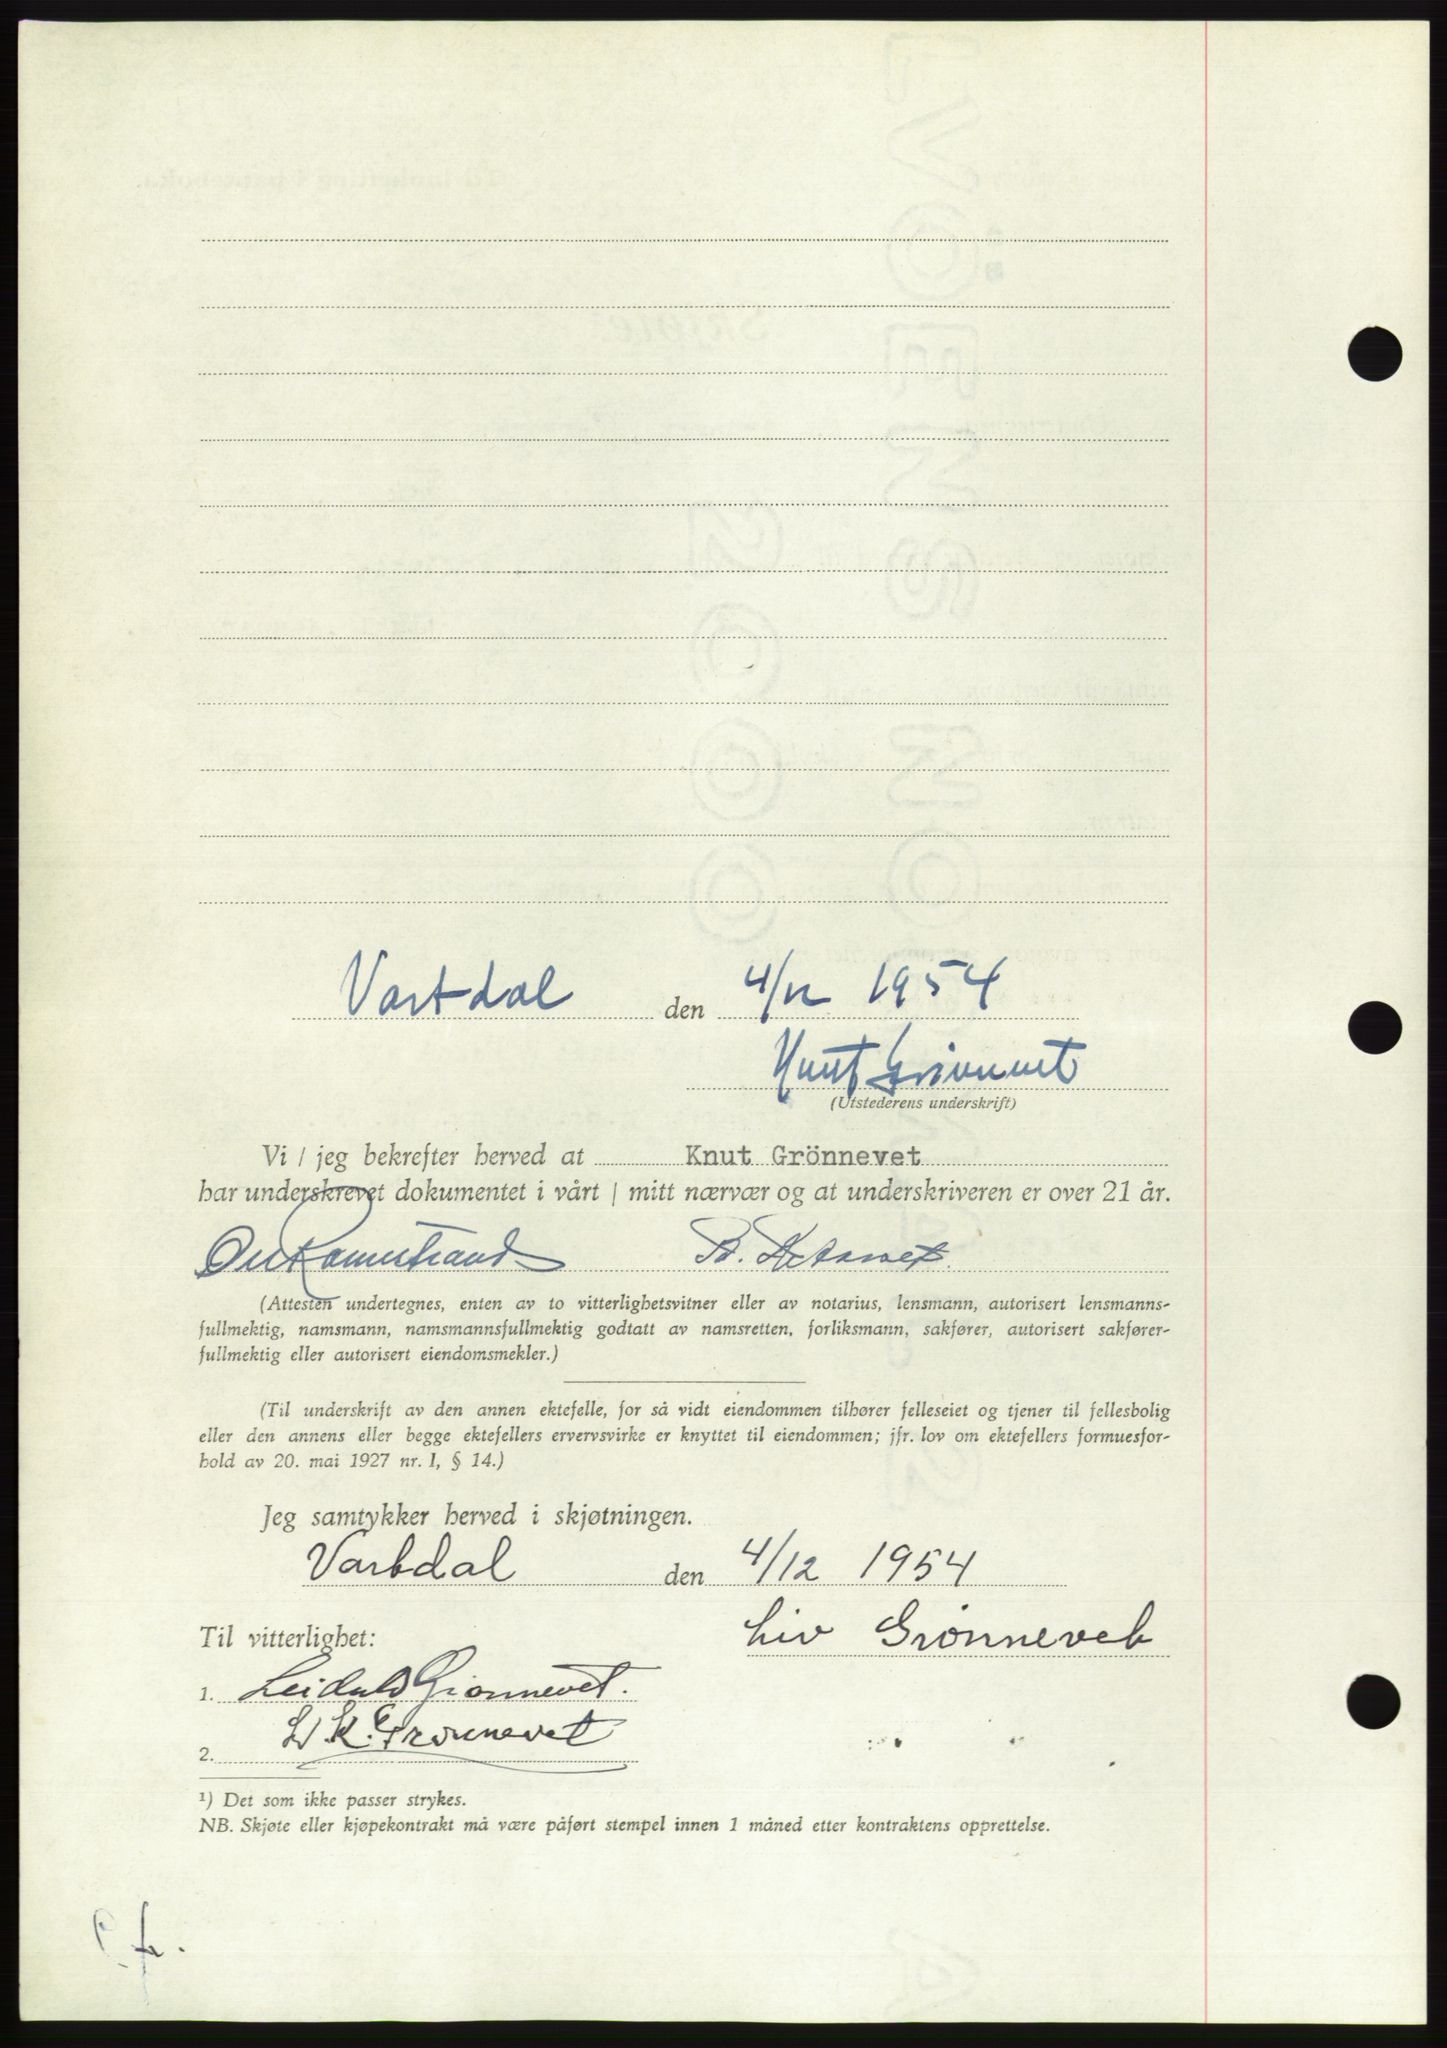 Vartdal den 4/12 1954
Knut Grönnevet
(Utstederens underskrift)
Vi / jeg bekrefter herved at Knut Grönnevet
har underskrevet dokumentet i vårt / mitt nærvær og at underskriveren er over 21 år.
(Attesten undertegnes, enten av to vitterlighetsvitner eller av notarius, lensmann, autorisert lensmanns-
fullmektig, namsmann, namsmannsfullmektig godtatt av namsretten, forliksmann, sakfører, autorisert sakfører-
fullmektig eller autorisert eiendomsmekler.)
(Til underskrift av den annen ektefelle, for så vidt eiendommen tilhører felleseiet og tjener til fellesbolig
eller den annens eller begge ektefellers ervervsvirke er knyttet til eiendommen; jfr. lov om ektefellers formuesfor-
hold av 20. mai 1927 nr. 1, § 14.)
Jeg samtykker herved i skjøtningen.
Vartdal den 4/12 1954
Til vitterlighet: Liv Grönnevet
1. Leidulv Grønnevet.
2. K. Grønnevet
¹) Det som ikke passer strykes.
NB. Skjøte eller kjøpekontrakt må være påført stempel innen 1 måned etter kontraktens opprettelse.